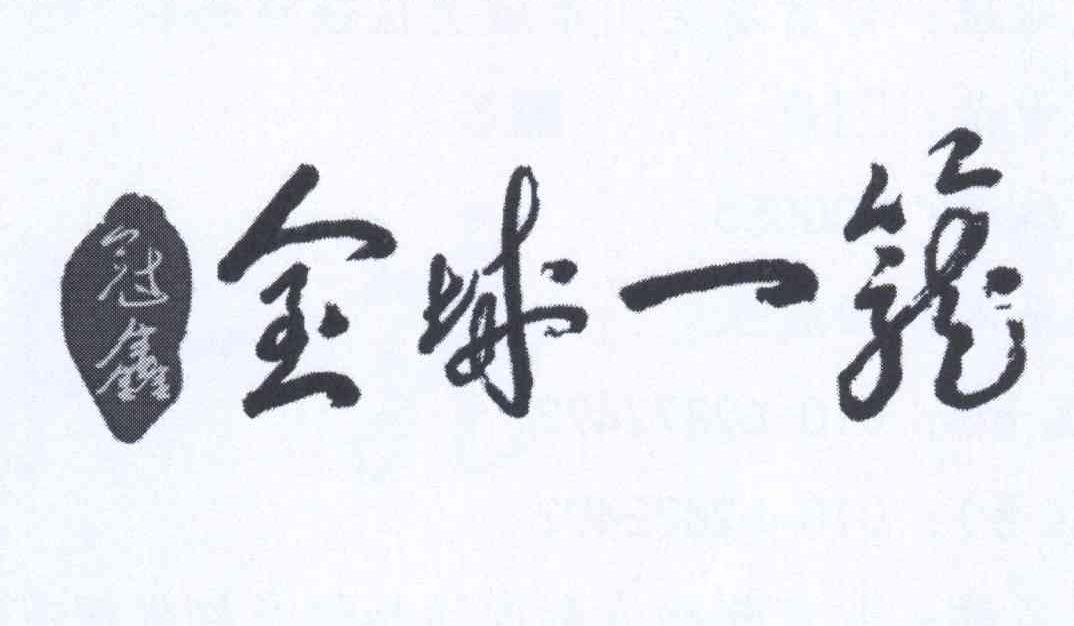 冠鑫 金球一龍